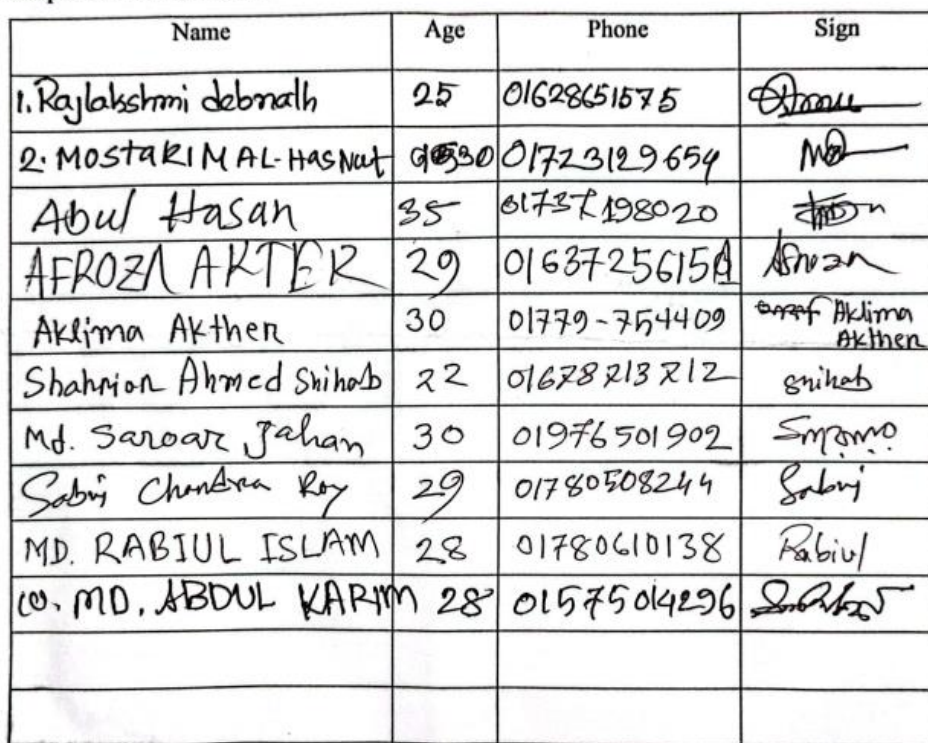 Name Age Phone Sign
1. Rajlakshmi debnath 25 01628651575
2. MOSTAKIM AL-HasNat 30 01723129654
Abul Hasan 35 01737198020
AFROZA AKTER 29 0163725615
Aklima Akther 30 01779-754409 Aklima
Akther
Shahrior Ahmed Shihab 22 01678213212 shihab
Md. Saroar Jahan 30 01976501902
Sabuj Chandra Roy 29 01780508244 Sabuj
MD. RABIUL ISLAM 28 01780610138 Rabiul
10. MD. ABDUL KARIM 28 01575014296